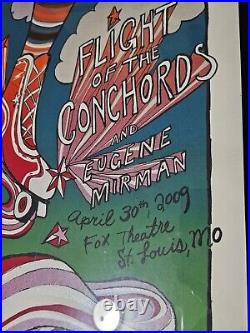 FLIGHT
OF THE
CONCHORDS
AND
EUGENE
MIRMAN
April 30th, 2009
Fox Theatre
St. Louis, MO
thecrazybin.com